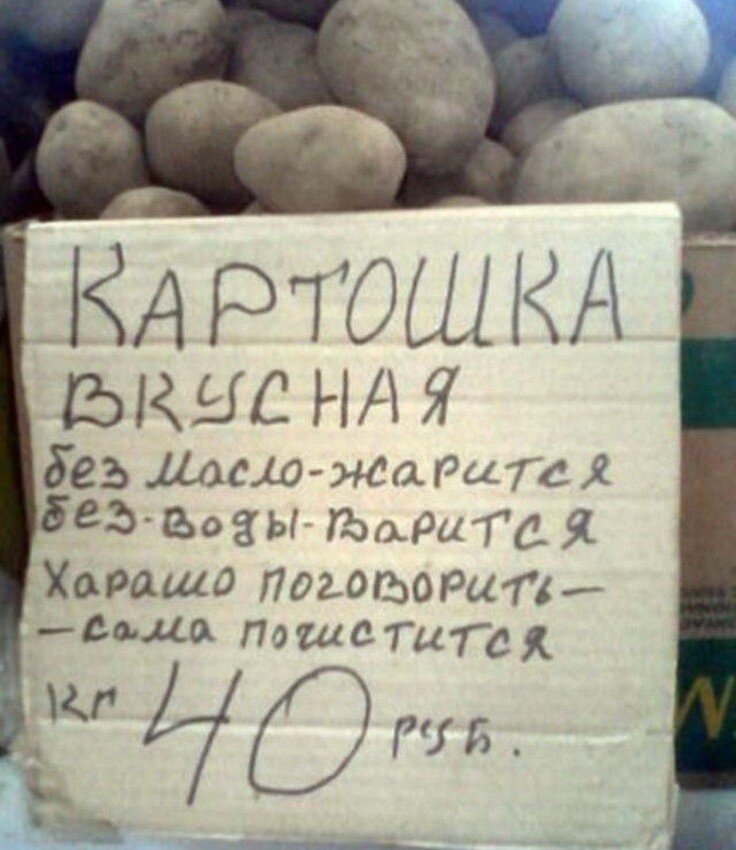 КАРТОШКА
ВКУСНАЯ
без масло-жарится
без-воды-варится
Харашо поговорить-
-сама почистится
кг 40 руб.